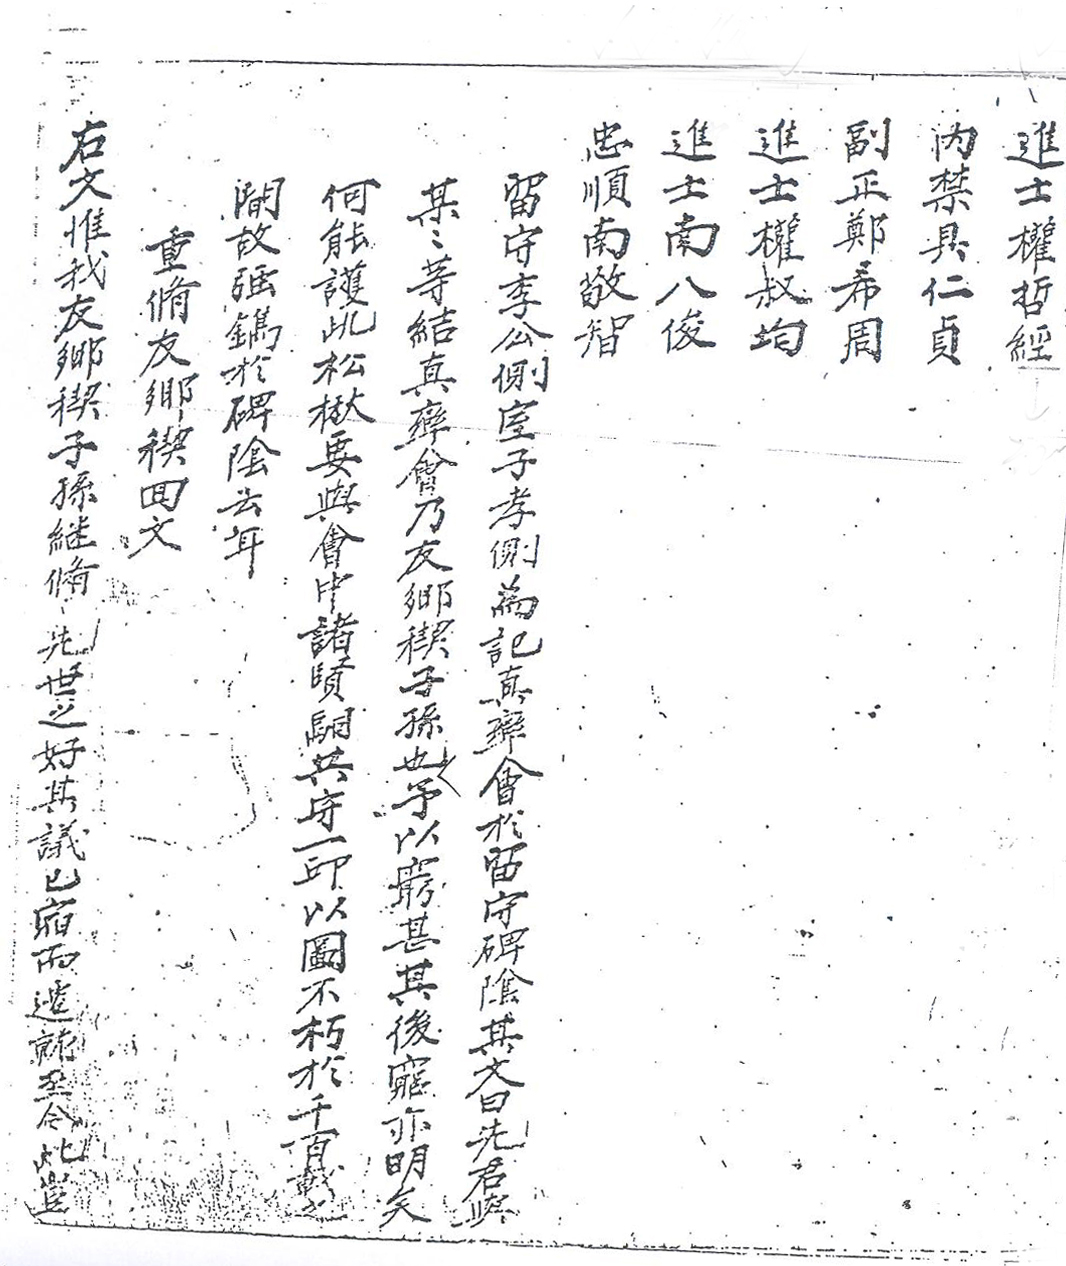 進士權哲經
內禁具仁貞
副正鄭希周
進士權叔均
進士南八俊
忠順南敬智
留守李公側室子孝側為記真率會於留守碑陰其文曰先君與
某〻等結真率會乃友鄉稧子孫也予以窮甚其後寵亦明矣
何能護此松楸要與會中諸賢嗣共守一印以圖不朽於千百載之
間故强鐫於碑陰云耳
重脩友鄉稧回文
右文惟我友鄉稧子孫継脩先世之好其議已宿而遷就至今此豈